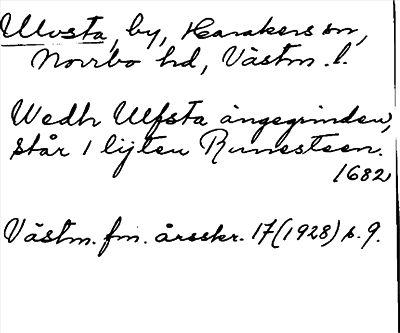 Ulvsta, by, Harakers sn,
Norrbo hd, Västm. l.
Wedh Ulfsta ängegrinden,
står 1 lijten Runesteen.
1682
Västm. fm. årsskr. 17 (1928) s. 9.